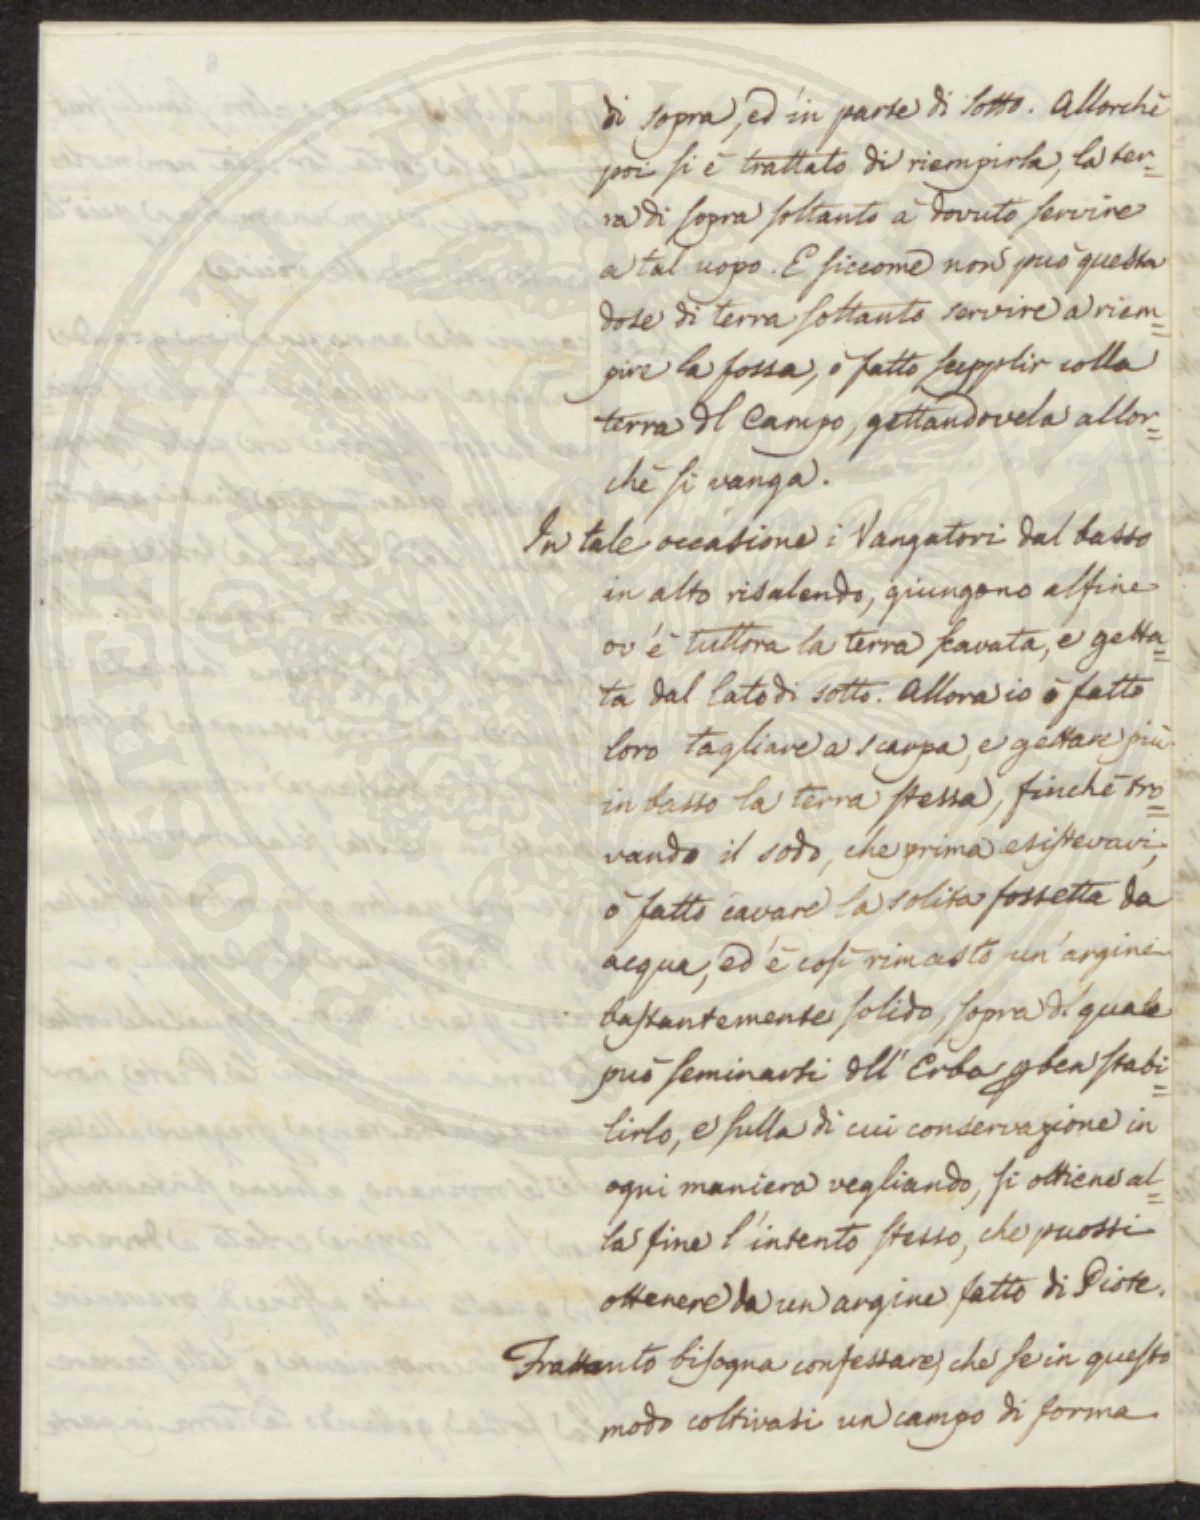 di sopra, ed in parte di sotto. Allorchè
poi si è trattato di riempirla, la ter=
ra di sopra soltanto à dovuto servire
a tal uopo. E siccome non può questa
dose di terra soltanto servire a riem=
pire la fossa, ò fatto supplir colla
terra dl Campo, gettandovela allor=
chè si vanga.
In tale occasione i Vangatori dal basso
in alto risalendo, giungono alfine
ov'è tuttora la terra scavata, e getta=
ta dal lato di sotto. Allora io ò fatto
loro tagliare a scarpa, e gettare più
in basso la terra stessa, finchè tro=
vando il sodo, che prima esistevavi,
ò fatto cavare la solita fossetta da
acqua, ed è così rimasto un'argine
bastantemente solido, sopra dl quale
può seminarsi dll' Erba p ben stabi=
lirlo, e sulla di cui conservazione in
ogni maniera vegliando, si ottiene al=
la fine l'intento stesso, che puossi
ottenere da un argine fatto di Piote.
Frattanto bisogna confessare, che se in questo
modo coltivasi un campo di forma
PROSPERITATI PVBLICAE